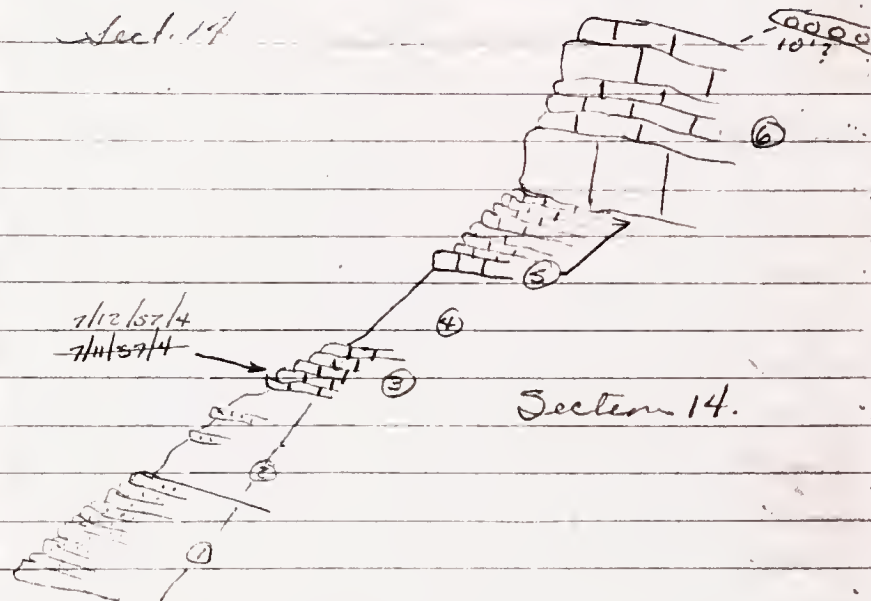 Sect. 14
10'?
6
5
4
7/12/57/4
7/11/57/4
3
Section 14.
2
1